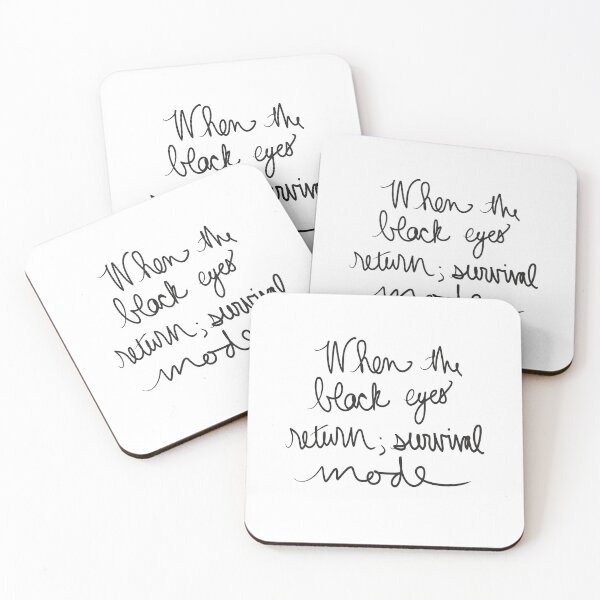 When the
black eyes
survival
When the
black eyes
return; survival
mode
When the
black eyes
return; survival
mode
When the
black eyes
return; survival
mode